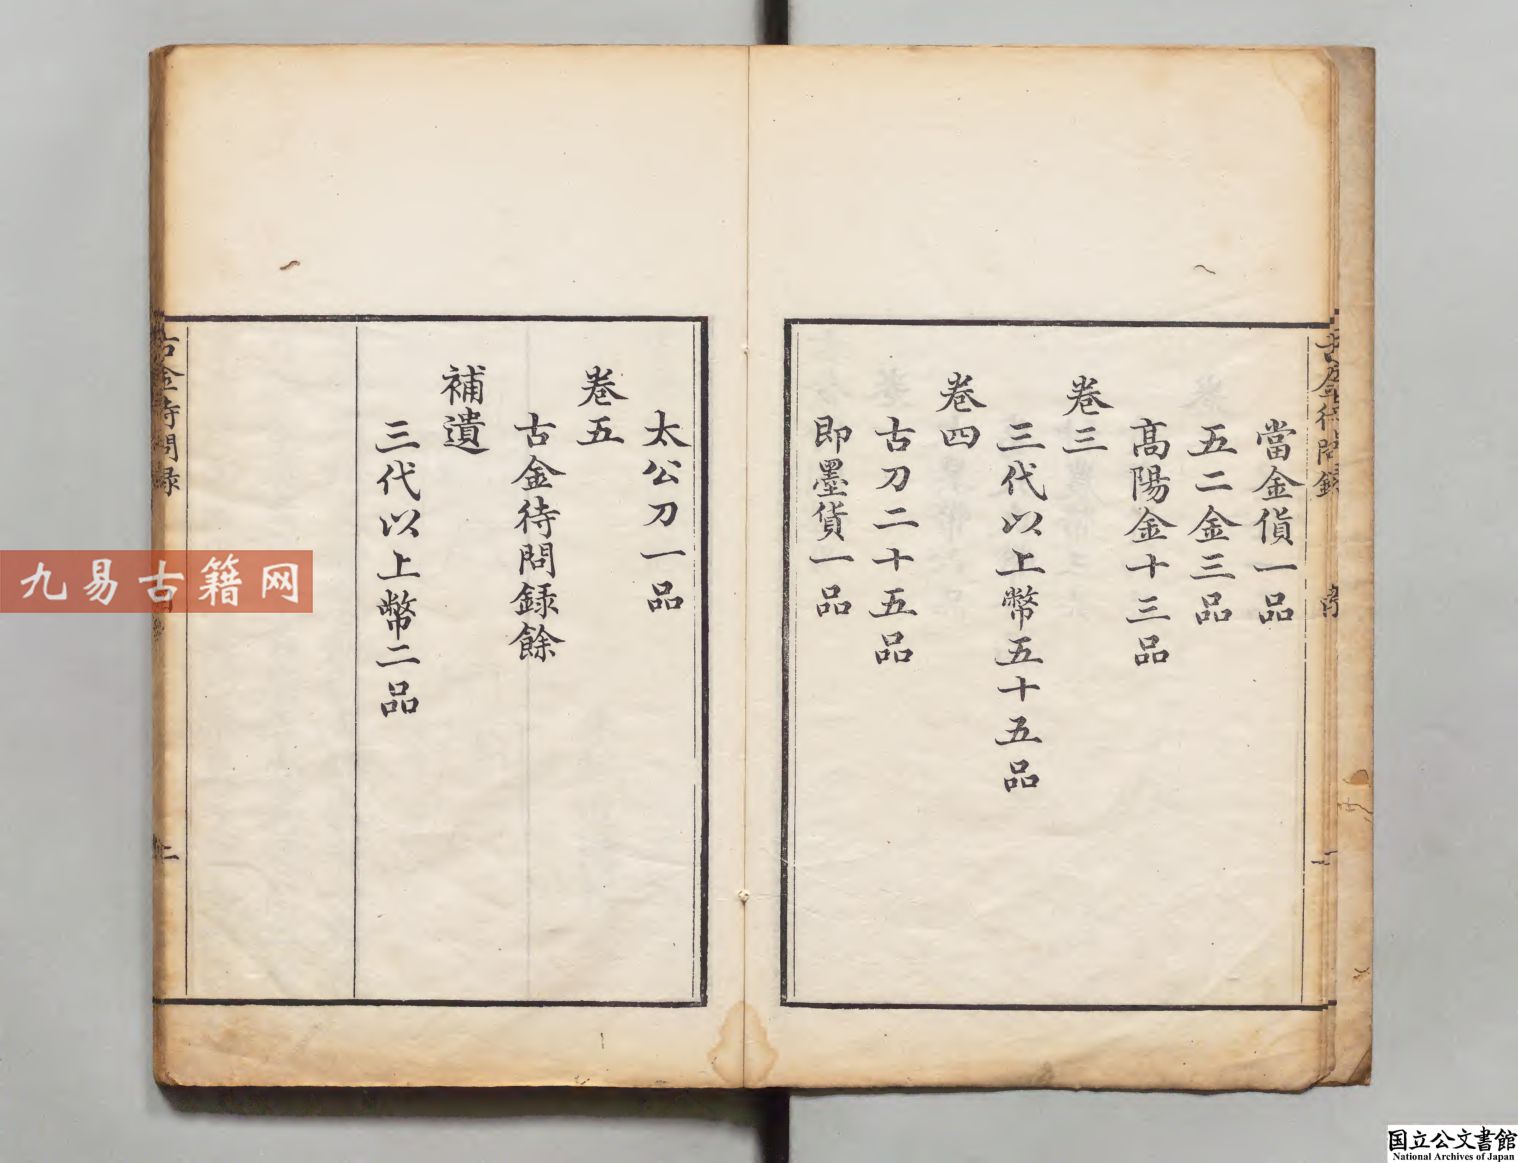 當金貨一品
五二金三品
高陽金十三品
卷三
三代以上幣五十五品
卷四
古刀二十五品
即墨貨一品
太公刀一品
卷五
古金待問録餘
補遺
三代以上幣二品
古金待問録
九易古籍网
国立公文書館
National Archives of Japan